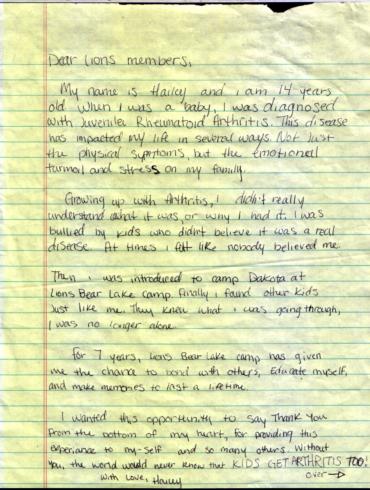 Dear Lions members,
My name is Hailey and i am 14 years
old. When I was a baby, I was diagnosed
with Juvenile Rheumatoid Arthritis. This disease
has impacted my life in several ways. Not Just
the physical symptoms, but the Emotional
turmoil and stress on my family.
Growing up with Arthritis, i didn't really
understand what it was, or why I had it. I was
bullied by kids who didn't believe it was a real
disease. At times i felt like nobody believed me.
Then i was introduced to camp Dakota at
Lions Bear Lake camp. Finally i found other kids
Just like me. They knew what i was going through,
I was no longer alone.
For 7 years, Lions Bear Lake camp has given
me the chance to bond with others, Educate myself,
and make memories to last a lifetime.
I wanted this opportunity to say Thank You
From the bottom of my heart, for providing this
experience to my-self and so many others. Without
You, the world would never know that KIDS GET ARTHRITIS TOO!
With Love, Hailey
over →